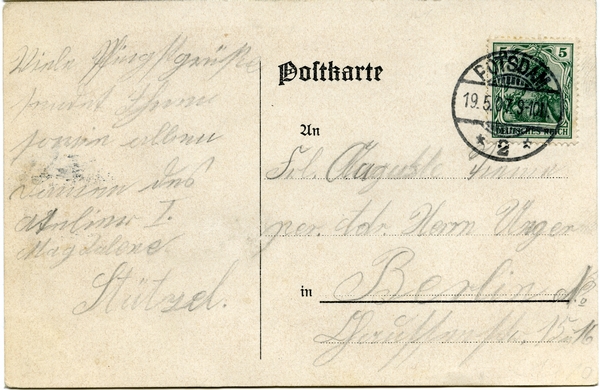 Viele Pfingstgrüße
sendet Ihnen
sowie allen
Damen des
Atelier I.
Magdalene
Stützel.
Postkarte
5
POTSDAM
19.5.07. 9-10
* 2 *
DEUTSCHES REICH
An
Frl. Auguste
per. Adr. Herrn Unger
in Berlin
15-16